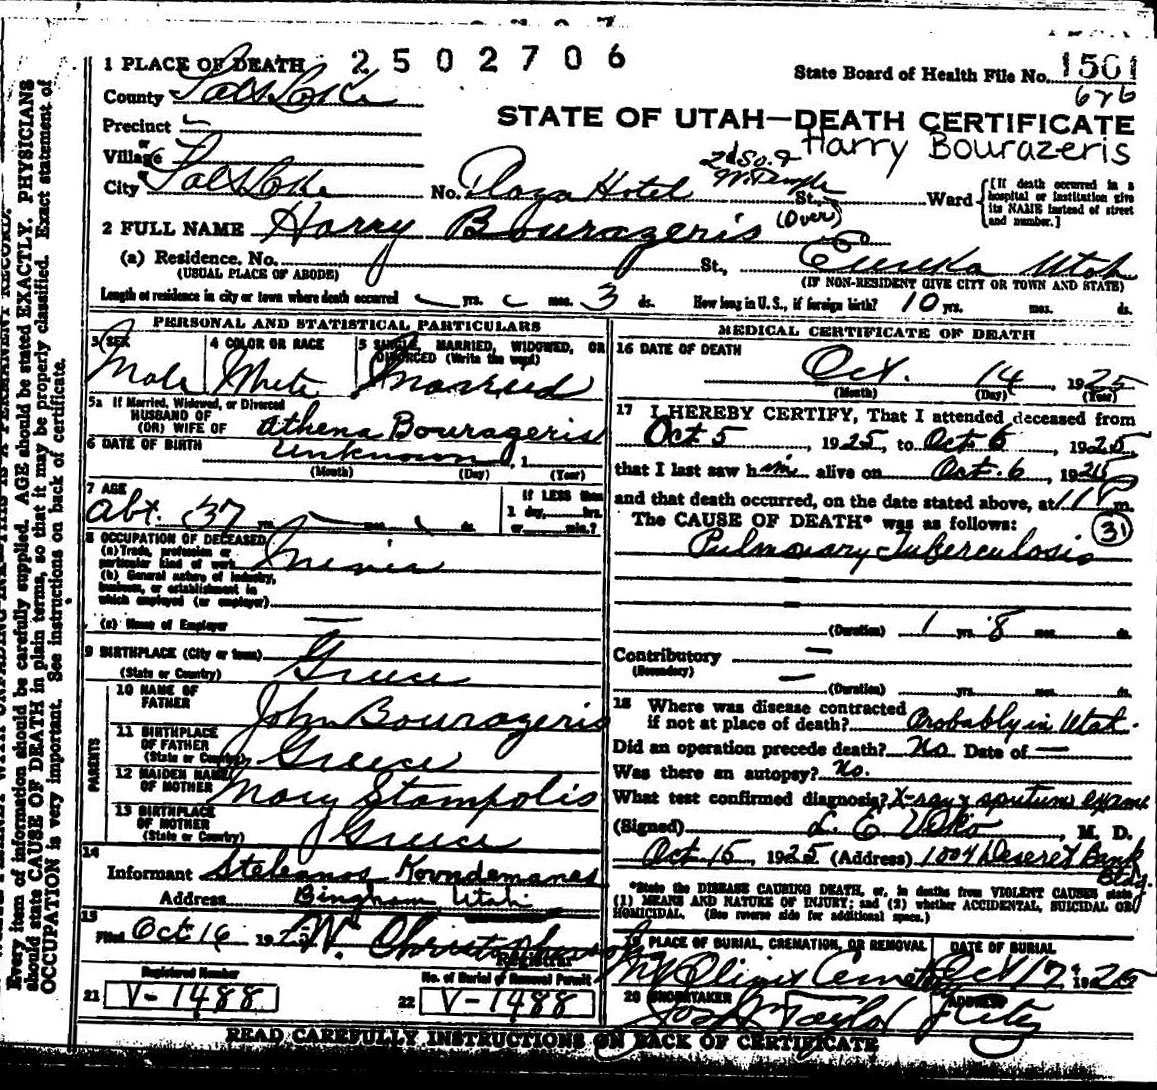 1 PLACE OF DEATH 2502706
State Board of Health File No. 1501
676
County Salt Lake
STATE OF UTAH—DEATH CERTIFICATE
Harry Bourazeris
Precinct
or
Village
City Salt Lake No. Plaza Hotel 2d So. & W. Temple St., Ward
[If death occurred in a hospital or institution give its NAME instead of street and number.]
2 FULL NAME Harry Bourazeris (Over)
(a) Residence. No. St., Eureka Utah
(USUAL PLACE OF ABODE) (IF NON-RESIDENT GIVE CITY OR TOWN AND STATE)
Length of residence in city or town where death occurred yrs. mos. 3 ds. How long in U.S., if foreign birth? 10 yrs. mos. ds.
PERSONAL AND STATISTICAL PARTICULARS
3 SEX 4 COLOR OR RACE 5 SINGLE, MARRIED, WIDOWED, OR DIVORCED (Write the word)
Male White Married
5a If Married, Widowed, or Divorced
HUSBAND OF
(OR) WIFE OF Athena Bourazeris
6 DATE OF BIRTH Unknown, 1
(Month) (Day) (Year)
7 AGE If LESS than
1 day, hrs.
or min.?
Abt. 37 yrs. mos. ds.
8 OCCUPATION OF DECEASED
(a) Trade, profession or
particular kind of work
(b) General nature of industry,
business, or establishment in
which employed (or employer)
(c) Name of Employer
9 BIRTHPLACE (City or town)
(State or Country) Greece
PARENTS
10 NAME OF
FATHER John Bourazeris
11 BIRTHPLACE
OF FATHER
(State or Country) Greece
12 MAIDEN NAME
OF MOTHER Mary Stampolis
13 BIRTHPLACE
OF MOTHER
(State or Country) Greece
14
Informant
Address Bingham Utah
15
Filed Oct 16 192
Registrar
Registered Number No. of Burial or Removal Permit
21 V-1488 22 V-1488
MEDICAL CERTIFICATE OF DEATH
16 DATE OF DEATH
Oct. 14, 1925
(Month) (Day) (Year)
17 I HEREBY CERTIFY, That I attended deceased from
Oct 5 1925, to Oct. 6, 1925,
that I last saw him alive on Oct. 6, 1925
and that death occurred, on the date stated above, at 11 P m.
The CAUSE OF DEATH* was as follows: 31
Pulmonary Tuberculosis
(Duration) 1 yrs. 8 mos. ds.
Contributory
(Secondary)
(Duration) yrs. mos. ds.
18 Where was disease contracted
if not at place of death? Probably in Utah.
Did an operation precede death? No. Date of —
Was there an autopsy? No.
What test confirmed diagnosis? X-ray & sputum exam
(Signed) L. E. Viko, M. D.
Oct 15, 1925 (Address) 1004 Deseret Bank Bldg.
*State the DISEASE CAUSING DEATH, or, in deaths from VIOLENT CAUSES state
(1) MEANS AND NATURE OF INJURY; and (2) whether ACCIDENTAL, SUICIDAL OR
HOMICIDAL. (See reverse side for additional space.)
19 PLACE OF BURIAL, CREMATION, OR REMOVAL DATE OF BURIAL
Mt Olivet Cemetery Oct 17, 1925
20 UNDERTAKER ADDRESS
Taylor City
READ CAREFULLY INSTRUCTIONS ON BACK OF CERTIFICATE
Every item of information should be carefully supplied. AGE should be stated EXACTLY. PHYSICIANS
should state CAUSE OF DEATH in plain terms, so that it may be properly classified. Exact statement of
OCCUPATION is very important. See instructions on back of certificate.